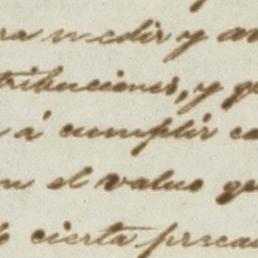 ra medir y av
tribuciones, y ge
á cumplir co
n el valuo ge
cierta preca